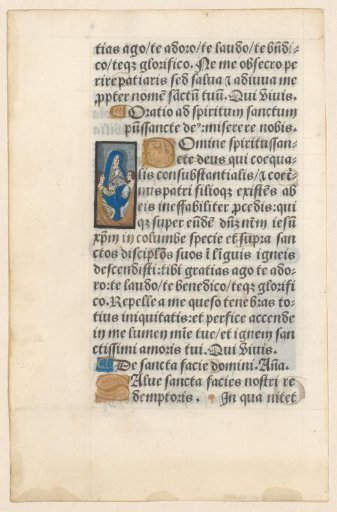 tias ago/te adoro/te laudo/te bñdi/
co/teqꝫ glorifico. Ne me obsecro pe
rire patiaris sed salua ⁊ adiuua me
ꝓpter nomē sāctū tuū. Qui viuis.
Oratio ad spiritum sanctum
pūssancte de⁹: miserere nobis.
Omine spiritussan-
cte deus qui coequa-
lis consubstantialis/⁊ coet̄
nus patri filioqꝫ existēs ab
eis ineffabiliter ꝓcedis: qui
qꝫ super eūdē dn̄m ntm iesū
xp̄m in columbe specie et supra san
ctos disciplōs suos ī līguis igneis
descendisti: tibi gratias ago te ado-
ro: te laudo/te benedico/teqꝫ glorifi
co. Repelle a me queso tenebras to-
tius iniquitatis: et perfice accende
in me lumen mīe tue/et ignem san
ctissimi amoris tui. Qui viuis.
De sancta facie domini. Añа.
Alue sancta facies nostri re
demptoris. In qua nitet